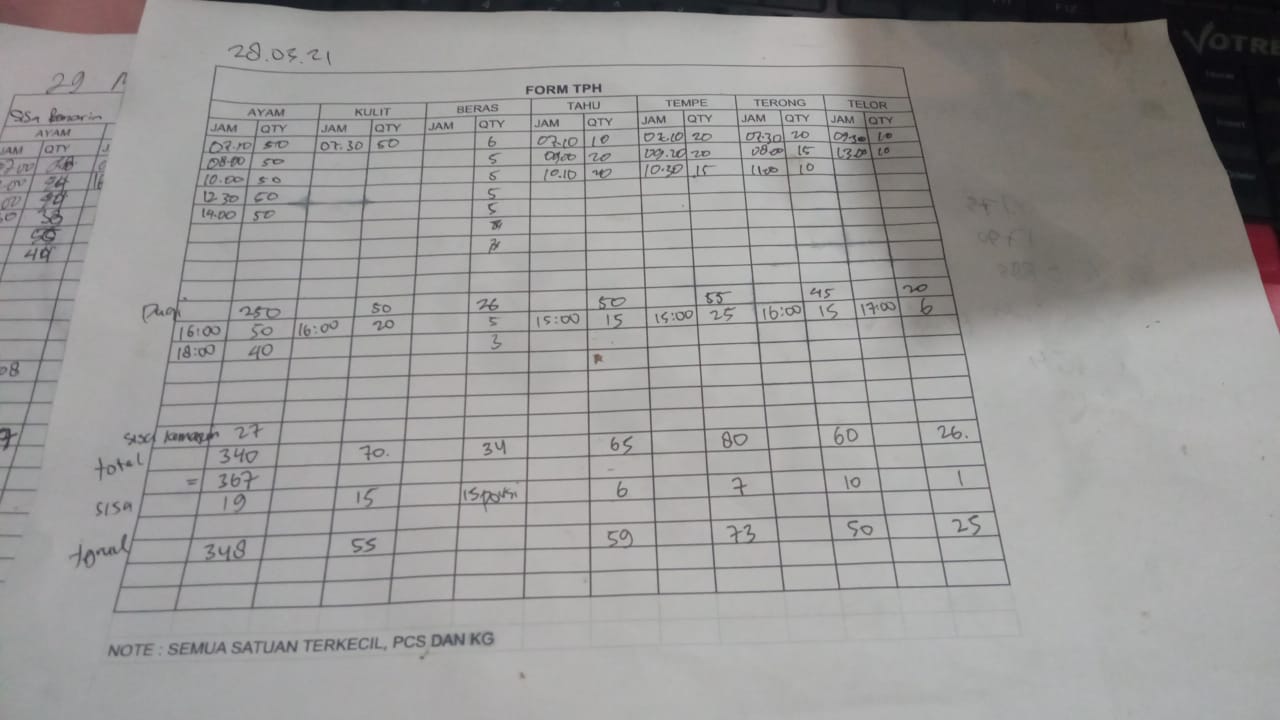 28.05.21
FORM TPH
AYAM KULIT BERAS TAHU TEMPE TERONG TELOR
JAM QTY JAM QTY JAM QTY JAM QTY JAM QTY JAM QTY JAM QTY
07.10 50 07.30 50 6 07.10 10 07.10 20 07.30 20 09.30 10
08.00 50 5 09.00 20 09.20 20 08.00 15 13.00 10
10.00 50 5 10.10 20 10.30 15 11.00 10
12.30 50 5
14.00 50 5
Pagi 250 50 26 50 55 45 20
16:00 50 16:00 20 5 15:00 15 15:00 25 16:00 15 17:00 6
18:00 40 3
sisa kemarin 27
total 340 70. 34 65 80 60 26.
= 367
sisa 19 15 15 porsi 6 7 10 1
348 55 59 73 50 25
NOTE : SEMUA SATUAN TERKECIL, PCS DAN KG
29
SISA kemarin
AYAM
JAM QTY
49
VOTRE